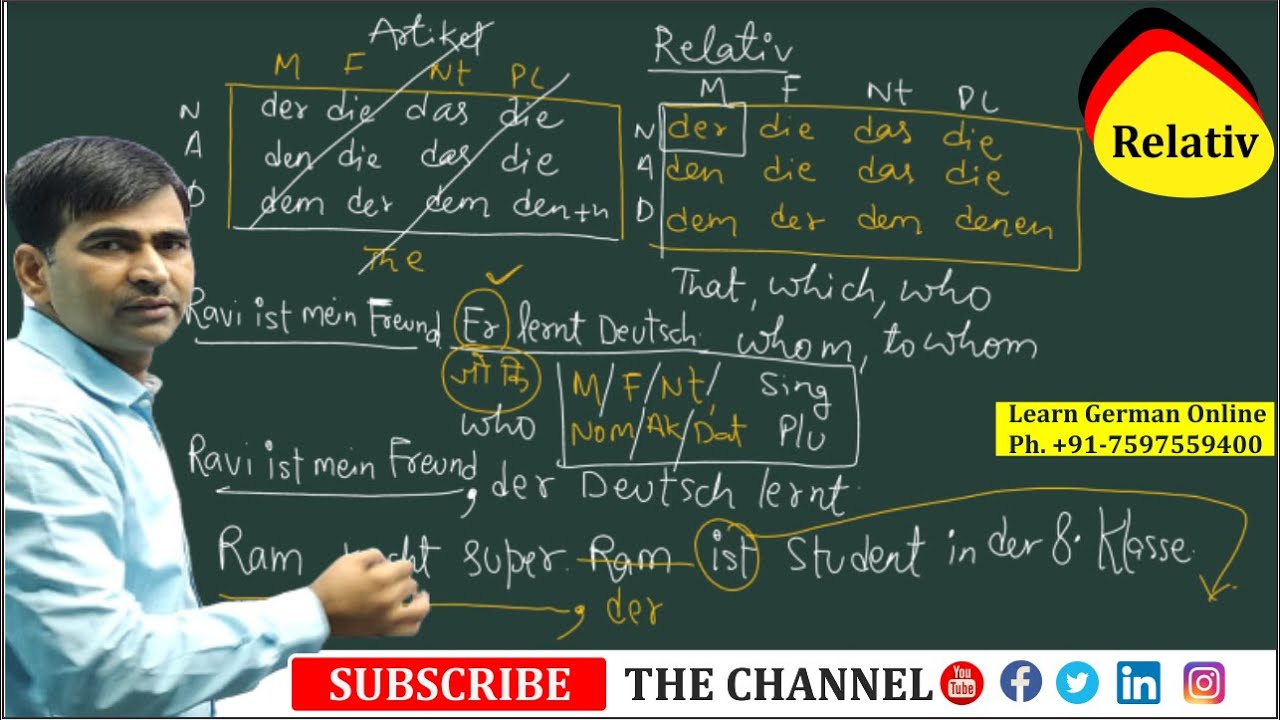 Artikel
M F Nt PL
N der die das die
A den die das die
D dem der dem den+n
The
Relativ
M F Nt PL
N der die das die
A den die das die
D dem der dem denen
That, which, who
whom, to whom
Relativ
Ravi ist mein Freund. Er lernt Deutsch.
जो कि
who
M/F/Nt/ Sing
Nom/Ak/Dat Plu
Learn German Online
Ph. +91-7597559400
Ravi ist mein Freund, der Deutsch lernt.
Ram super. Ram ist Student in der 8. Klasse.
, der
SUBSCRIBE THE CHANNEL
You Tube
f
in